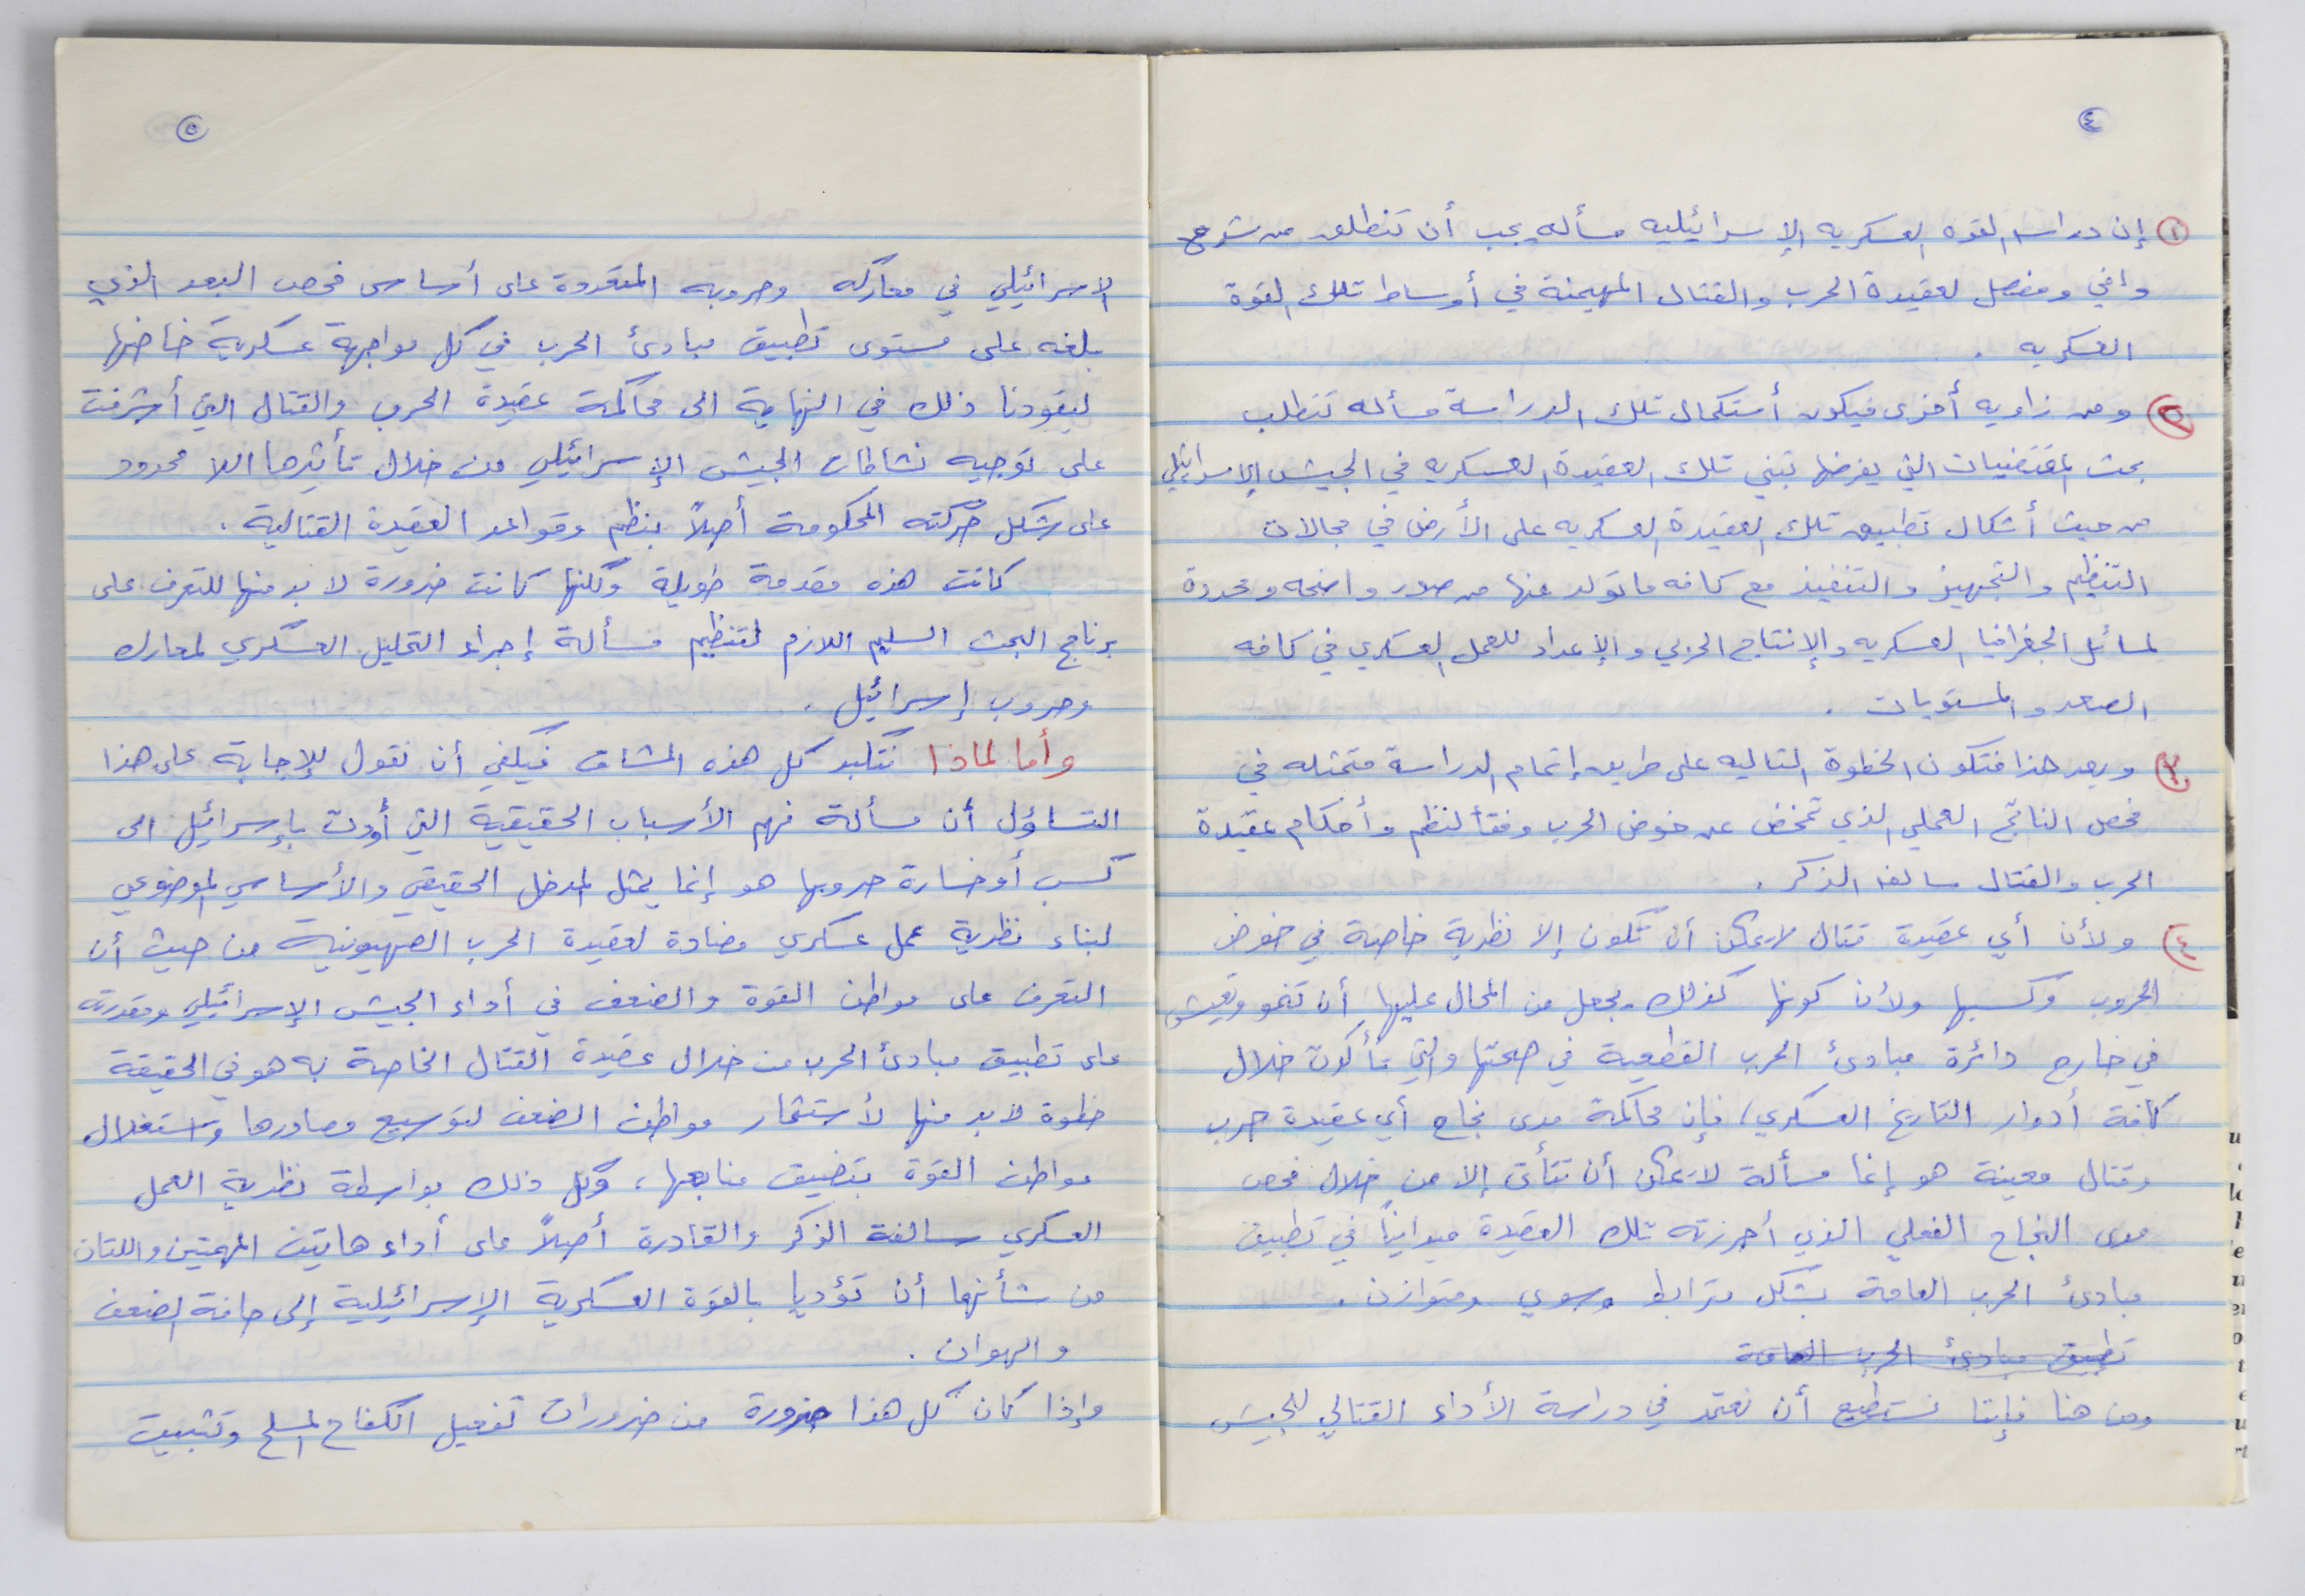 ٤
١ إن دراسة القوه العسكريه الإسرائيليه مسأله يجب أن تنطلق من شرح
وافي ومفصل لعقيدة الحرب والقتال المهيمنة في أوساط تلك القوة
العسكريه .
٢ ومن زاويه أخرى فيكون أستكمال تلك الدراسة مسأله تتطلب
بحث المقتضيات التي يفرضها تبني تلك العقيدة العسكريه في الجيش الإسرائيلي
من حيث أشكال تطبيق تلك العقيدة العسكريه على الأرض في مجالات
التنظيم والتجهيز والتنفيذ مع كافه ما تولد عنها من صور واضحه ومحددة
لمسائل الجغرافيا العسكريه والإنتاج الحربي والإعداد للعمل العسكري في كافه
الصعد والمستويات .
٣ وبعد هذا فتكون الخطوة التاليه على طريق إتمام الدراسة متمثله في
فحص الناتج العملي الذي تمخض عن خوض الحرب وفقاً لنظم وأحكام عقيدة
الحرب والقتال سالفة الذكر .
٤ ولأن أي عقيدة قتال لا يمكن أن تكون إلا نظرية خاصة في خوض
الحروب وكسبها ولأن كونها كذلك يجعل من المحال عليها أن تنمو وتعيش
في خارج دائرة مبادئ الحرب القطعية في صحتها والتي تأكدت خلال
كافة أدوار التاريخ العسكري، فإن محاكمة مدى نجاح أي عقيدة حرب
وقتال معينة هو إنما مسألة لا يمكن أن تتأتى إلا من خلال فحص
مدى النجاح الفعلي الذي أحرزته تلك العقيدة ميدانياً في تطبيق
مبادئ الحرب العامة بشكل مترابط وسوي ومتوازن .
تطبيق مبادئ الحرب العامة
ومن هنا فإننا نستطيع أن نعتمد في دراسة الأداء القتالي للجيش
٥
الإسرائيلي في معاركه وحروبه المتعددة على أساس فحص البعد الذي
بلغه على مستوى تطبيق مبادئ الحرب في كل مواجهة عسكرية خاضها
ليقودنا ذلك في النهاية الى محاكمة عقيدة الحرب والقتال التي أشرفت
على توجيه نشاطات الجيش الإسرائيلي من خلال تأثيرها اللا محدود
على شكل حركته المحكومة أصلاً بنظم وقواعد العقيدة القتالية .
كانت هذه مقدمة طويلة ولكنها كانت ضرورة لا بد منها للتعرف على
برنامج البحث السليم اللازم لتنظيم مسألة إجراء التحليل العسكري لمعارك
وحروب إسرائيل .
وأما لماذا نتكبد كل هذه المشاق فيكفي أن نقول للإجابة على هذا
التساؤل أن مسألة فهم الأسباب الحقيقية التي أودت بإسرائيل الى
كسب أو خسارة حروبها هو إنما يمثل المدخل الحقيقي والأساسي الموضوعي
لبناء نظرية عمل عسكري مضادة لعقيدة الحرب الصهيونية من حيث أن
التعرف على مواطن القوة والضعف في أداء الجيش الإسرائيلي ومقدرته
على تطبيق مبادئ الحرب من خلال عقيدة القتال الخاصة به هو في الحقيقة
خطوة لا بد منها لأستثمار مواطن الضعف لتوسيع مصادرها واستغلال
مواطن القوة بتضييق منابعها، وكل ذلك بواسطة نظرية العمل
العسكري سالفة الذكر والقادرة أصلاً على أداء هاتين المهمتين واللتان
من شأنهما أن تؤديا بالقوة العسكرية الإسرائيلية إلى حافة الضعف
والهوان .
وإذا كان كل هذا ضرورة من ضرورات تفعيل الكفاح المسلح وتثبيت